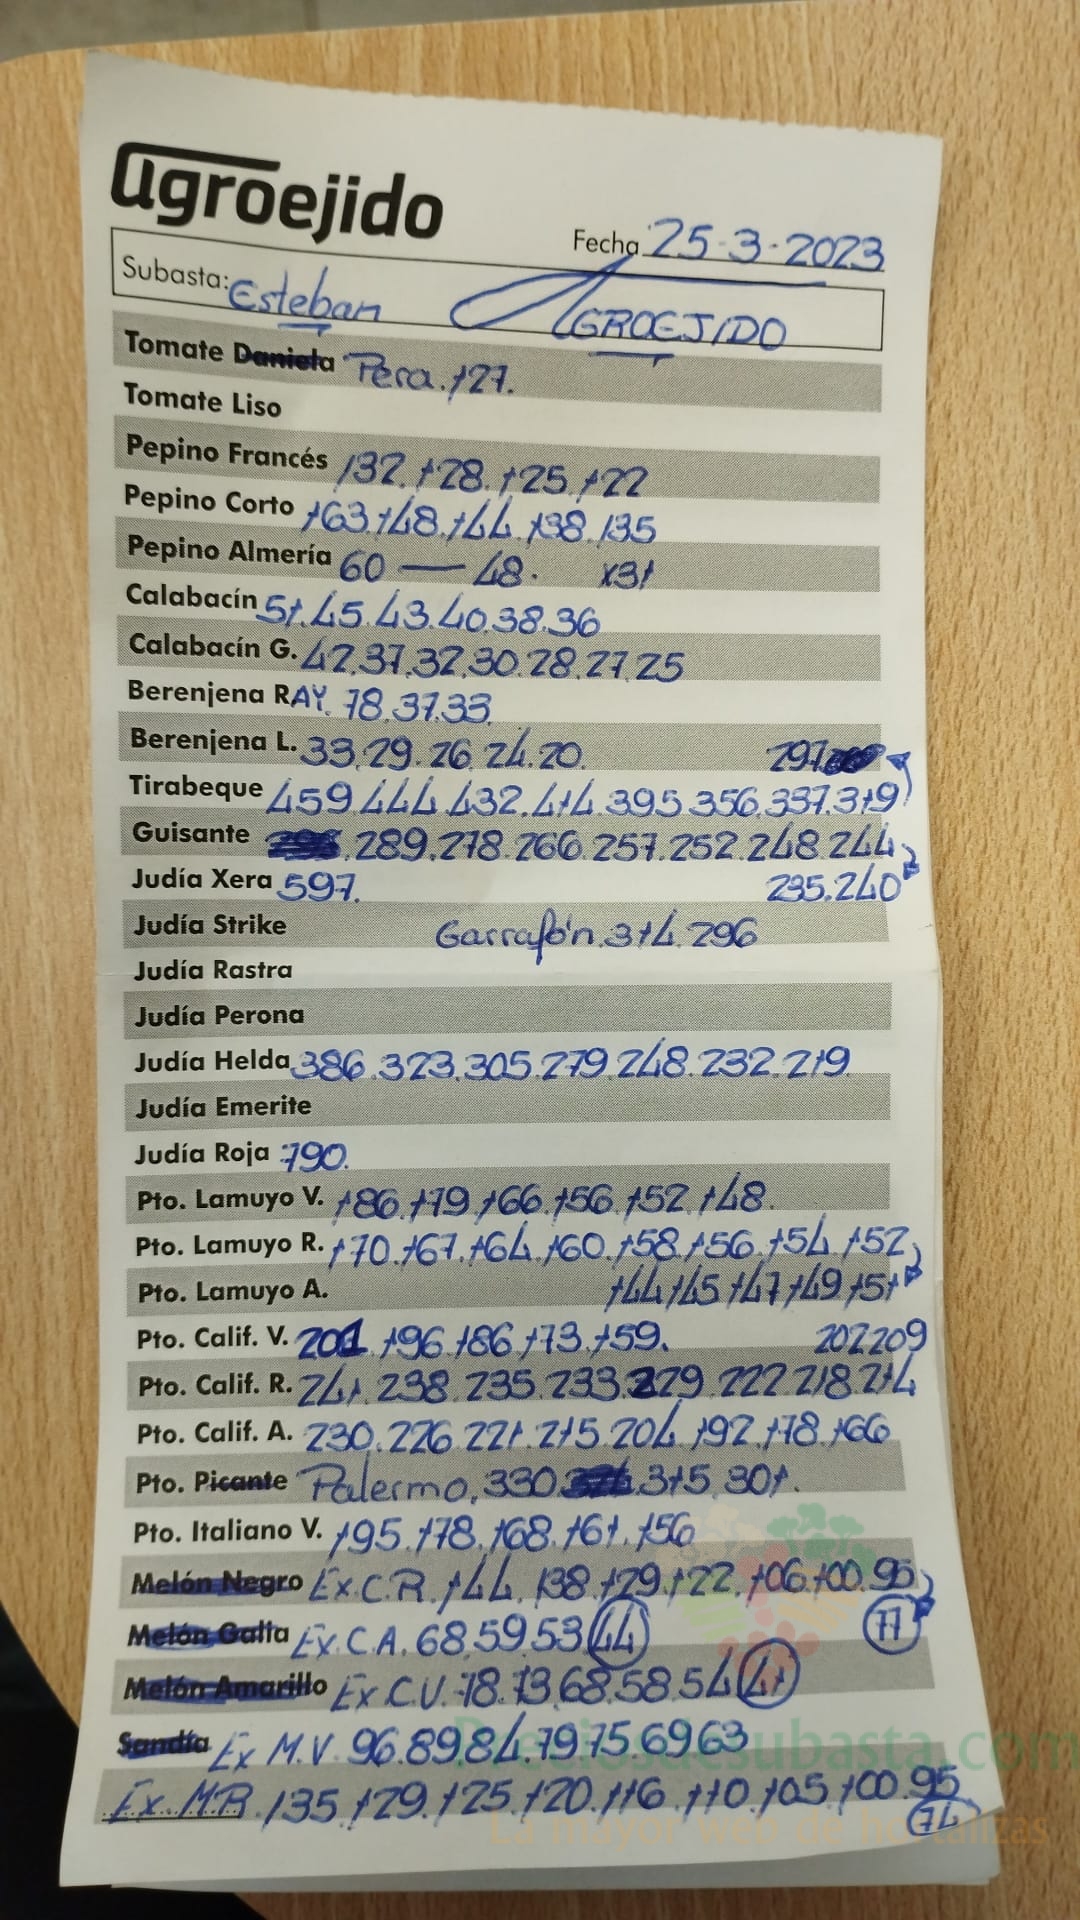 agroejido
Fecha 25-3-2023
Subasta: Esteban AGROEJIDO
Tomate Daniela Pera. 127.
Tomate Liso
Pepino Francés 132. 128. 125. 122
Pepino Corto 163. 148. 144. 138. 135
Pepino Almería 60 — 48. x31
Calabacín 51. 45. 43. 40. 38. 36
Calabacín G. 42. 37. 32. 30. 28. 27. 25
Berenjena RAY. 78. 37. 33.
Berenjena L. 33. 29. 26. 24. 20. 297.
Tirabeque 459. 444. 432. 414. 395. 356. 337. 319
Guisante 289. 278. 266. 257. 252. 248. 244
Judía Xera 597. 235. 240
Judía Strike Garrafón. 314. 296
Judía Rastra
Judía Perona
Judía Helda 386. 323. 305. 279. 248. 232. 219
Judía Emerite
Judía Roja 790.
Pto. Lamuyo V. 186. 179. 166. 156. 152. 148.
Pto. Lamuyo R. 170. 167. 164. 160. 158. 156. 154. 152
Pto. Lamuyo A. 144 145 147 149 151
Pto. Calif. V. 201. 196. 186. 173. 159. 202 209
Pto. Calif. R. 241. 238. 235. 233. 229. 222. 218. 214
Pto. Calif. A. 230. 226. 221. 215. 204. 192. 178. 166
Pto. Picante Palermo. 330. 315. 301.
Pto. Italiano V. 195. 178. 168. 161. 156
Melón Negro Ex. C.R. 144. 138. 129. 122. 106. 100. 95
Melón Galia Ex. C.A. 68. 59. 53 44 77
Melón Amarillo Ex C.V. 78. 73. 68. 58. 54 41
Sandía Ex M.V. 96. 89. 84. 79. 75. 69. 63
Ex. M.R. 135. 129. 125. 120. 116. 110. 105. 100. 95
74
Preciosdesubasta.com
La mayor web de hortalizas